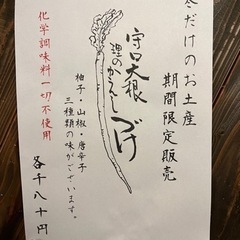 冬だけのお土産
期間限定販売
守口大根
づけ
柚子・山椒・唐辛子
三種類の味がございます。
化学調味料一切不使用
各千八十円